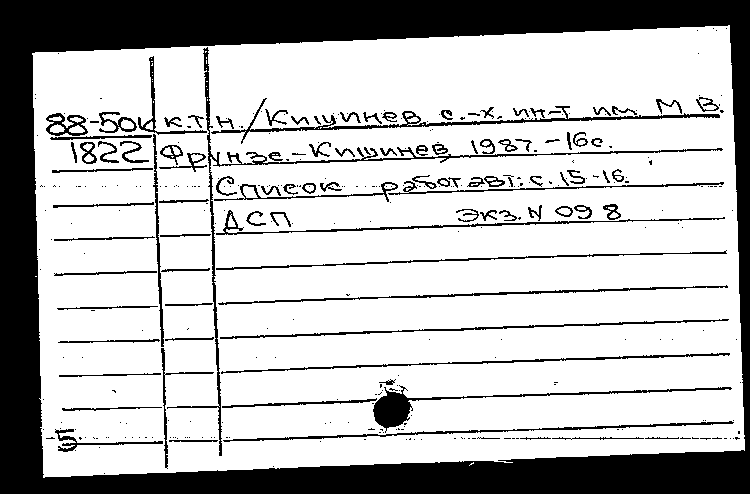 88-50к к.т.н./Кишинев. с.-х. ин-т им. М.В.
1822 Фрунзе.-Кишинев, 1987.-16с.
Список работ авт.: с. 15-16.
ДСП Экз. N 098
5